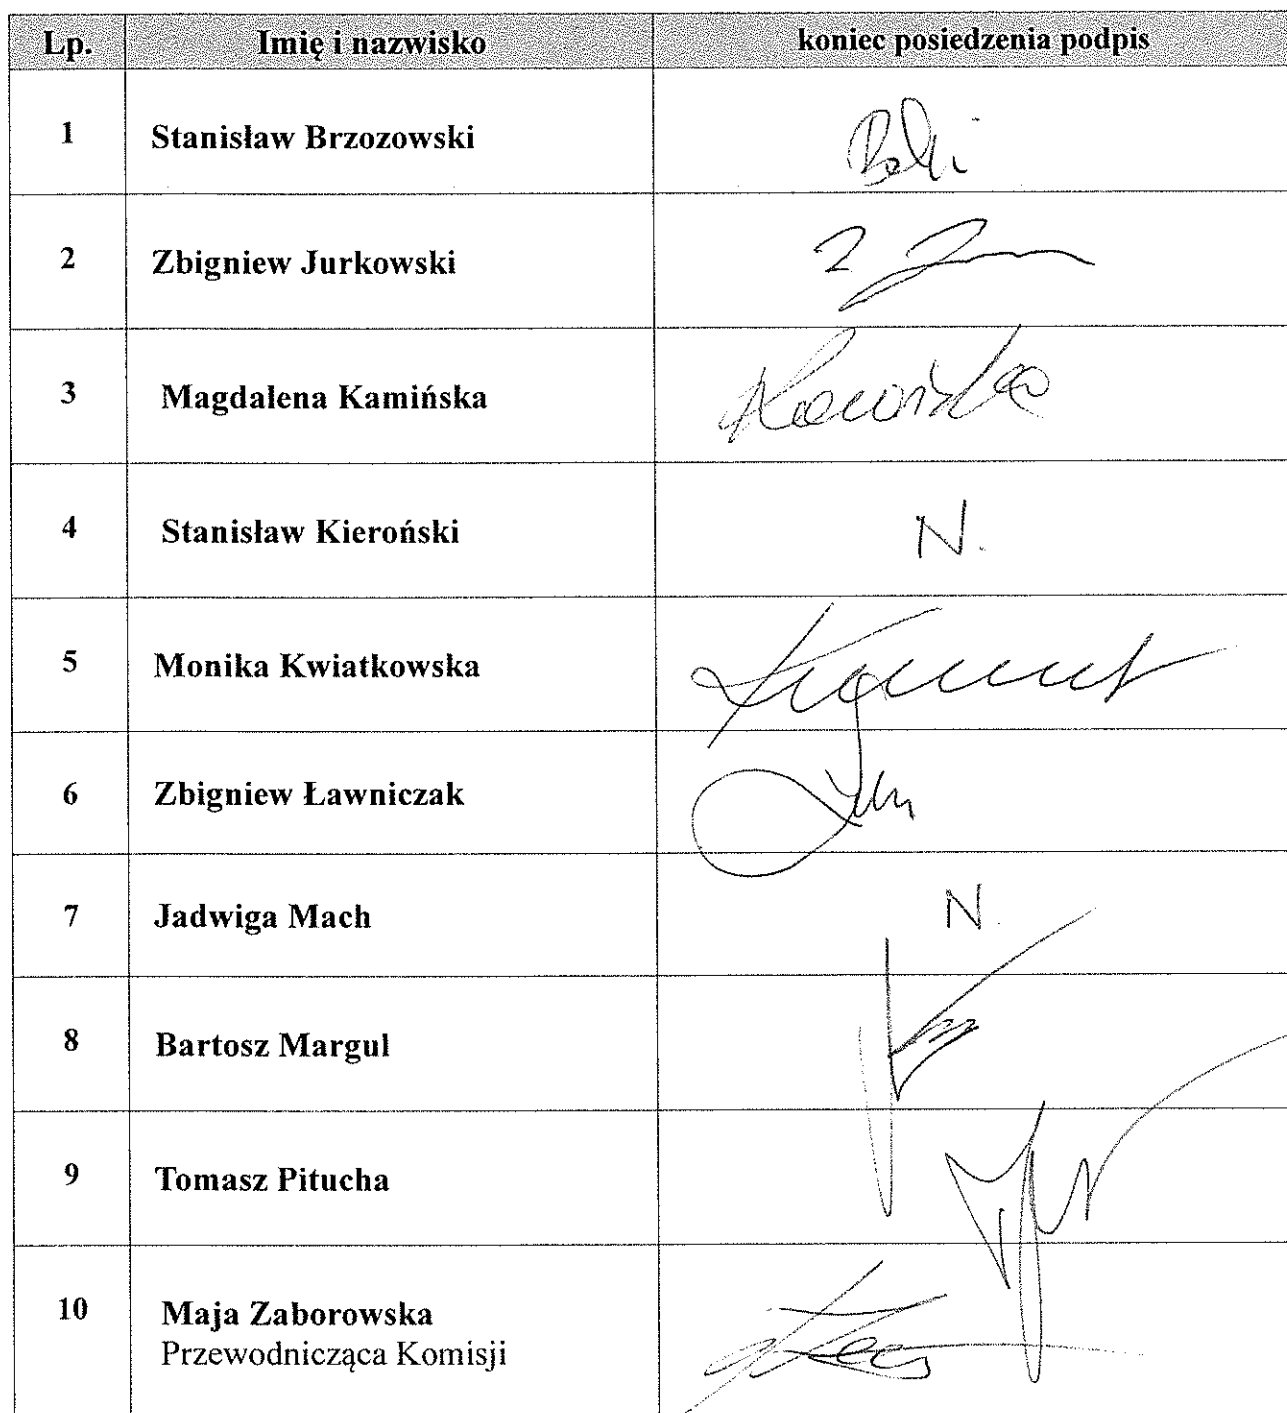 Lp. Imię i nazwisko koniec posiedzenia podpis
1 Stanisław Brzozowski
2 Zbigniew Jurkowski
3 Magdalena Kamińska
4 Stanisław Kieroński N.
5 Monika Kwiatkowska
6 Zbigniew Ławniczak
7 Jadwiga Mach N.
8 Bartosz Margul
9 Tomasz Pitucha
10 Maja Zaborowska
Przewodnicząca Komisji